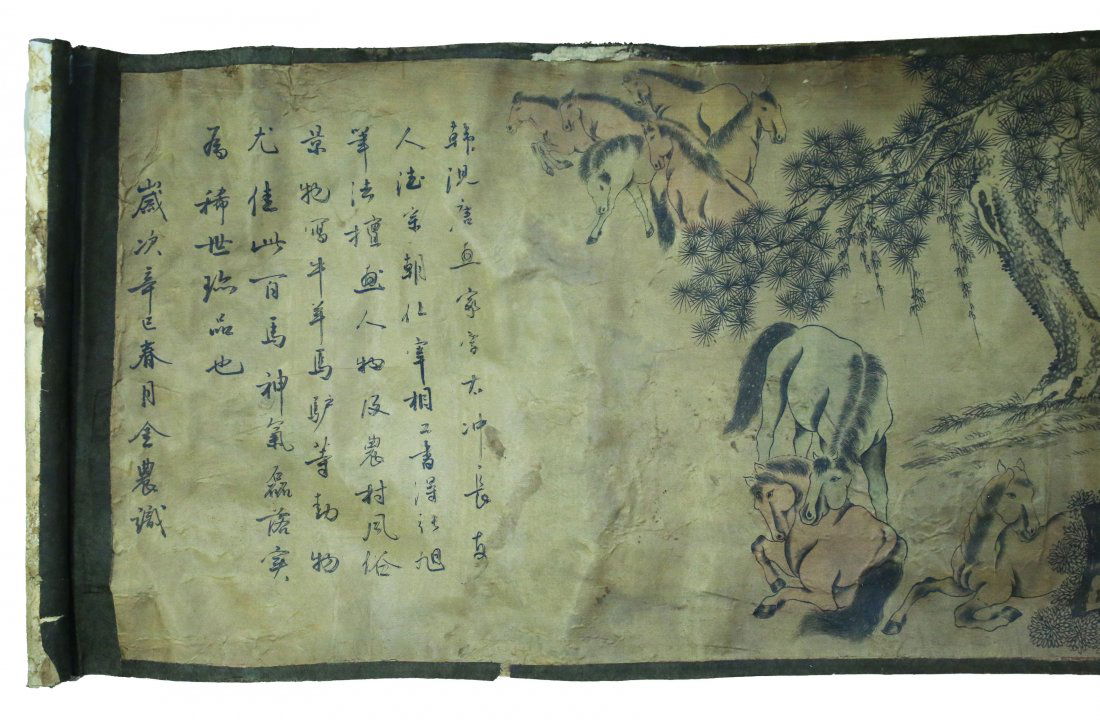 韓滉唐画家字太冲長安
人德宗朝任宰相工書得张旭
筆法擅画人物及農村风俗
景物写牛羊馬驴等動物
尤佳此百馬神氣磊落实
為稀世珍品也
歲次辛巳春月金農識